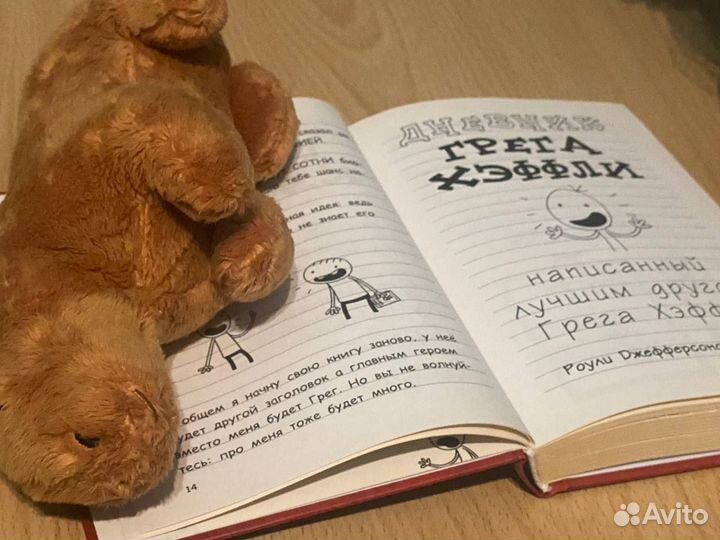 сказал
ИЕЙ.
СОТНИ био-
тебе шанс не
ная идея: ведь
не знает его
общем я начну свою книгу заново, у неё
удет другой заголовок а главным героем
вместо меня будет Грег. Но вы не волнуй-
тесь: про меня тоже будет много.
14
ДНЕВНИК
ГРЕГА
ХЭФФЛИ
написанный
лучшим друго
Грега Хэфф
Роули Джефферсоно
Avito